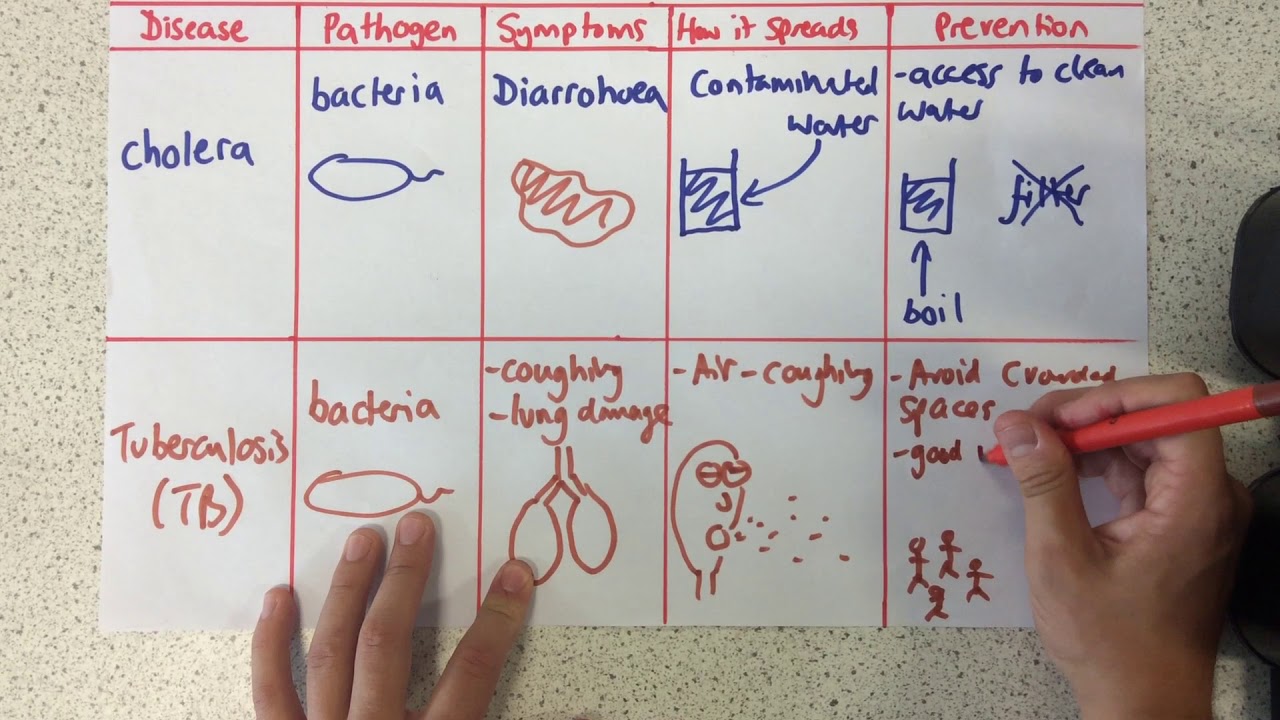 Disease Pathogen Symptoms How it spreads Prevention
cholera
bacteria
Diarrohoea
Contaminated
water
-access to clean
water
filter
boil
Tuberculosis
(TB)
bacteria
-coughing
-lung damage
-Air-coughing
-Avoid Crowded
spaces
-good